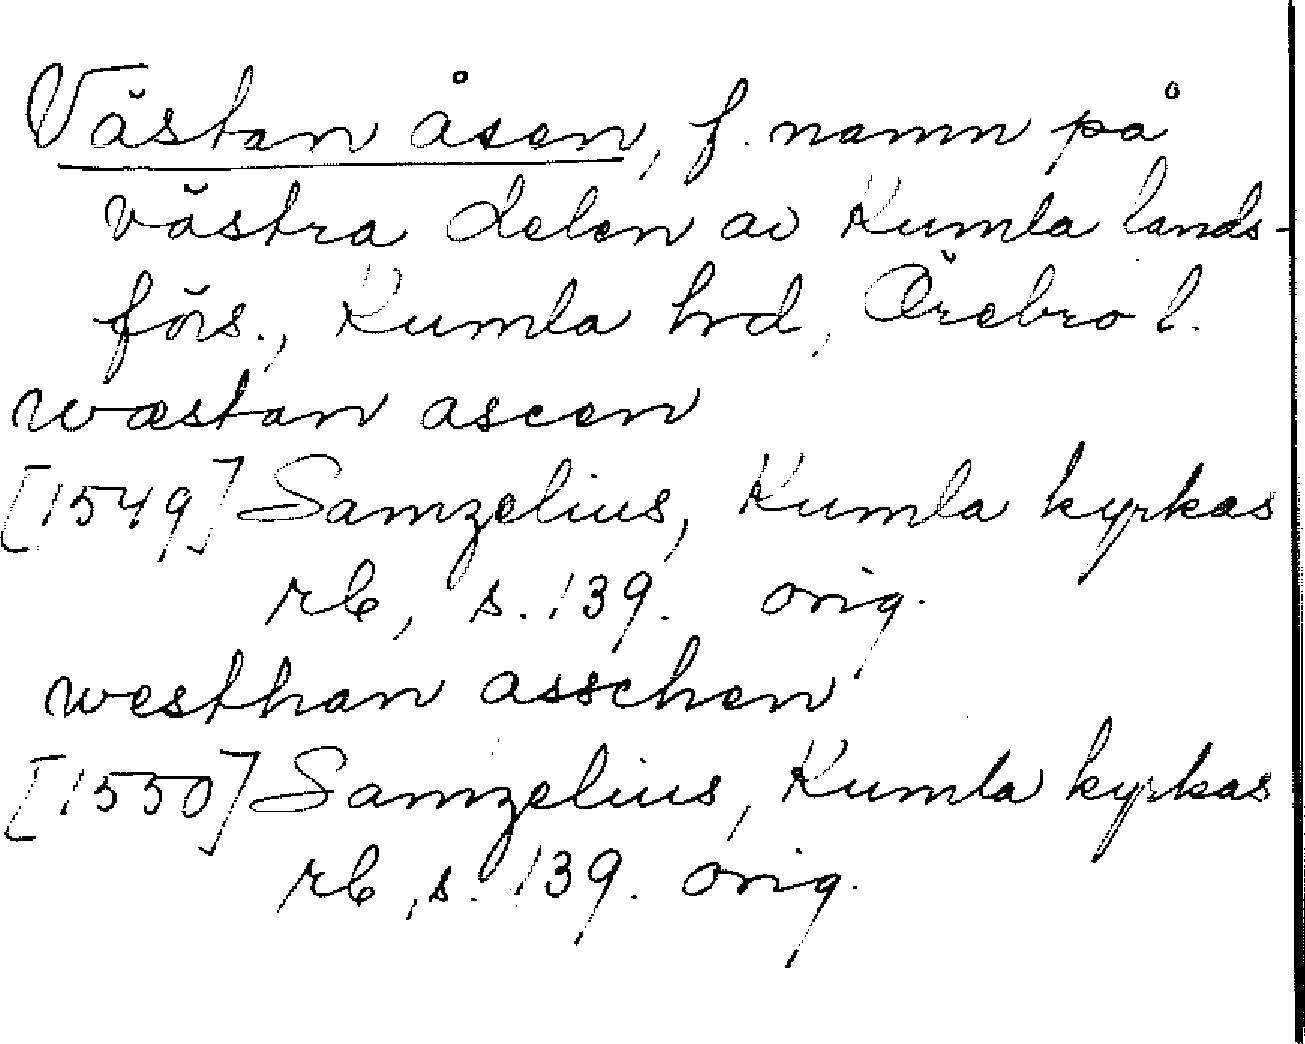 Västan åsen, f. namn på
västra delen av Kumla lands-
förs., Kumla hrd, Örebro l.
wæstan ascen
[1549] Samzelius, Kumla kyrkas
rb, s. 139. orig.
westhan asschen
[1550] Samzelius, Kumla kyrkas
rb, s. 139. orig.